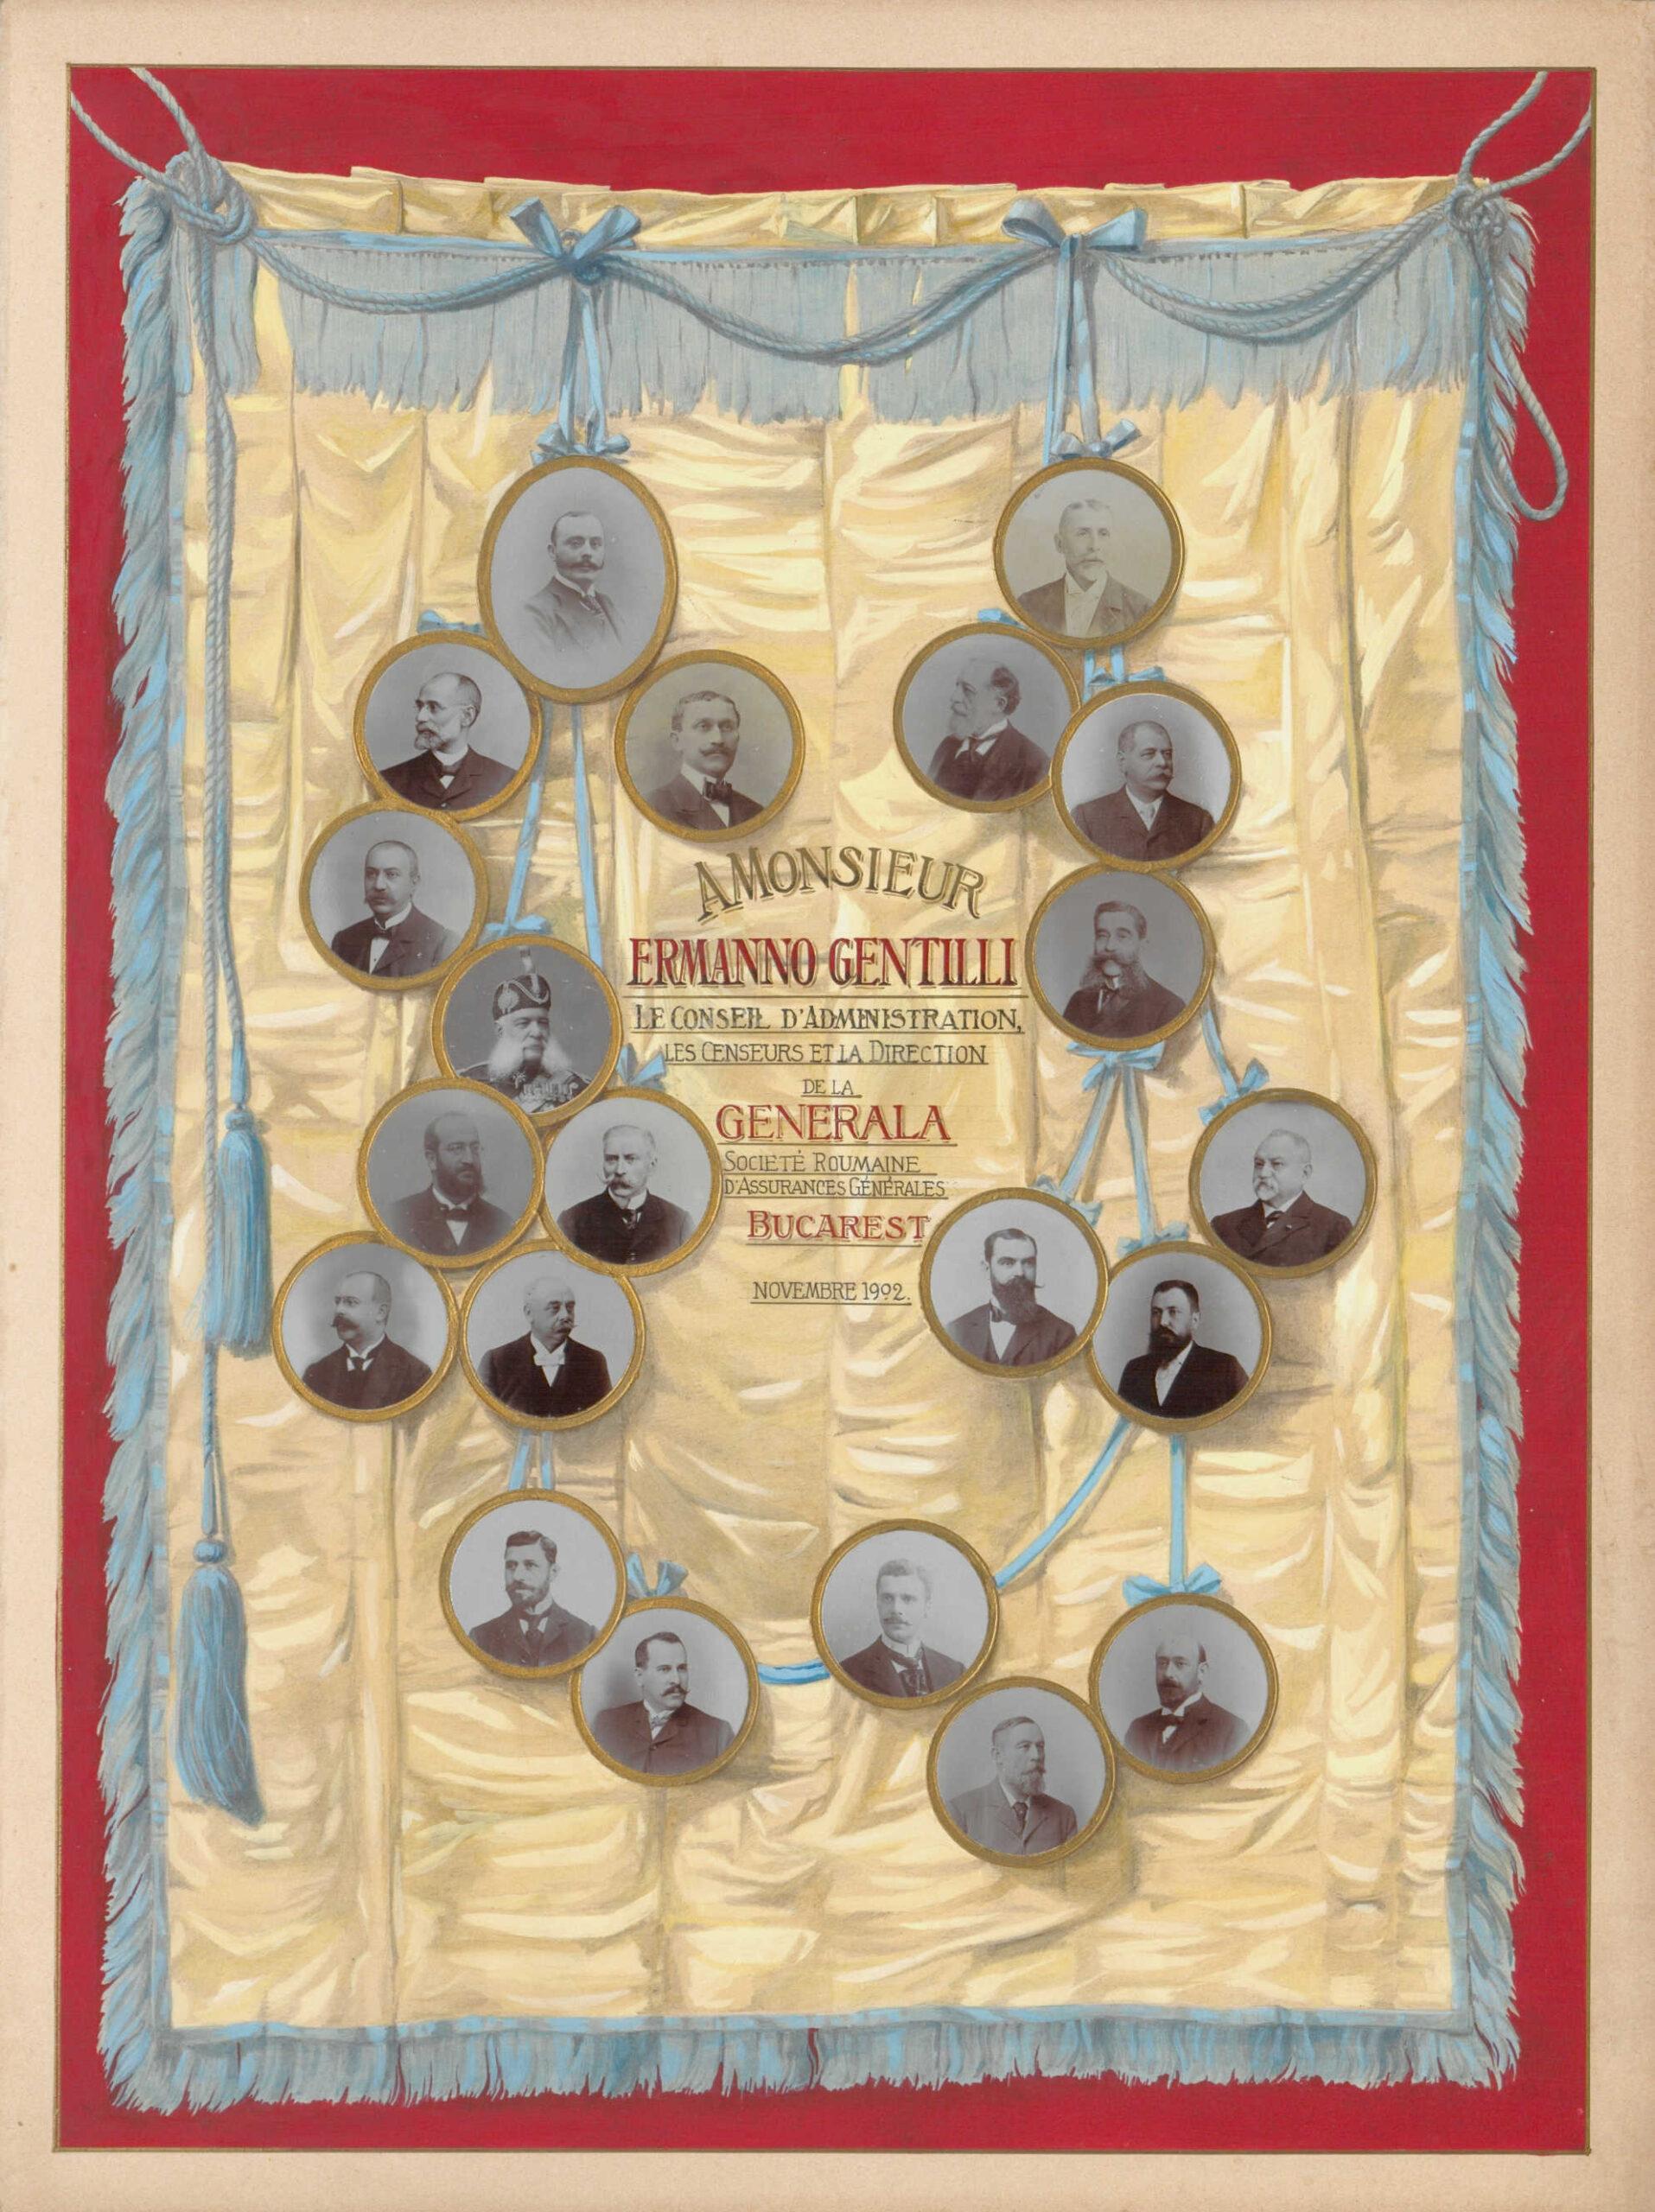 A MONSIEUR
ERMANNO GENTILLI
LE CONSEIL D'ADMINISTRATION,
LES CENSEURS ET LA DIRECTION
DE LA
GENERALA
SOCIETÉ ROUMAINE
D'ASSURANCES GÉNÉRALES
BUCAREST
NOVEMBRE 1902.